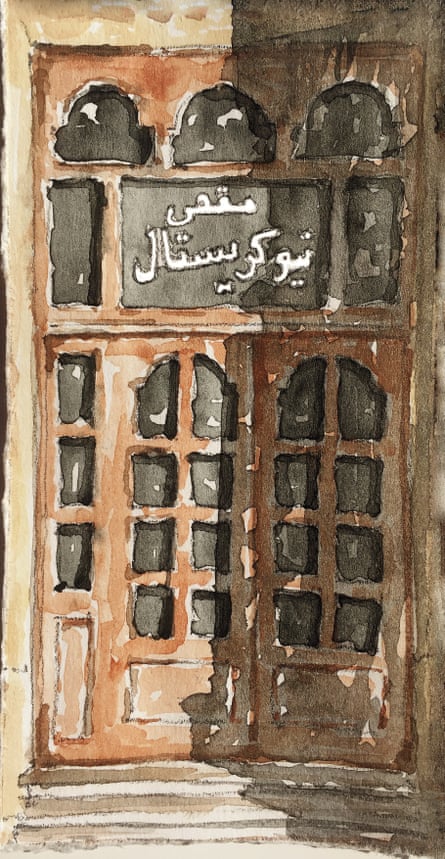 مقهى
نيو كريستال